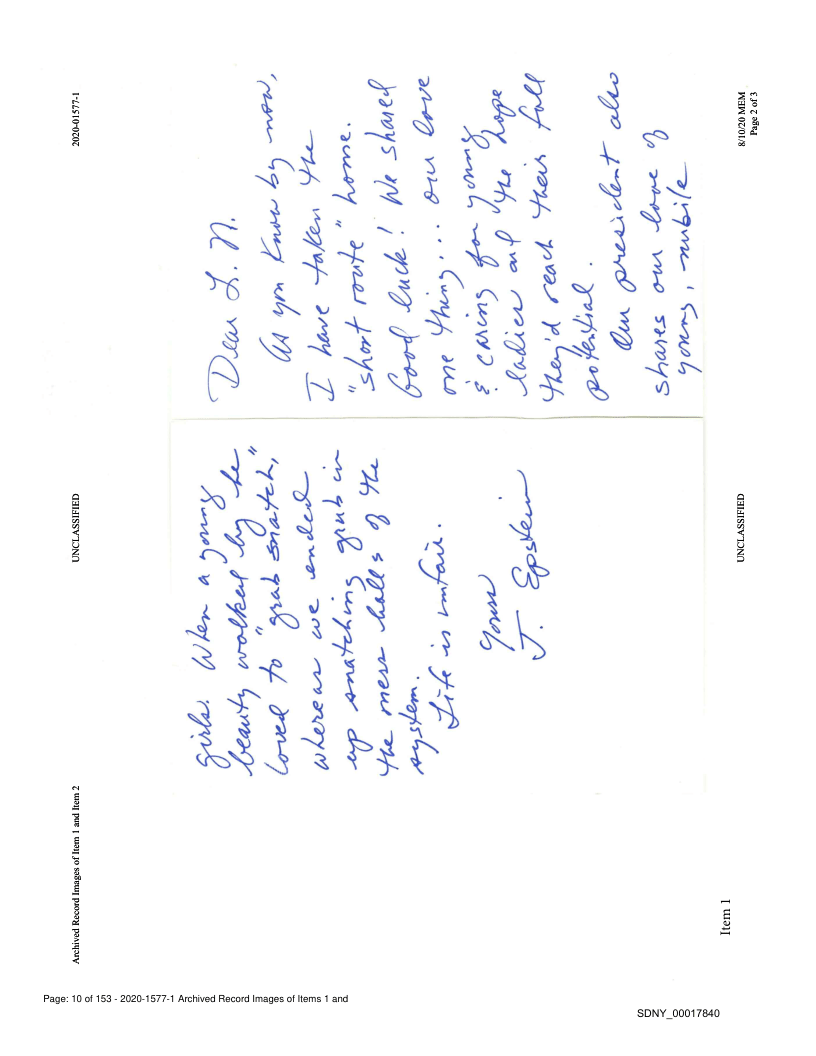 2020-01577-1
UNCLASSIFIED
Archived Record Images of Item 1 and Item 2
Dear L. N.
As you know by now,
I have taken the
"short route" home.
Good luck! We shared
one thing... our love
& caring for young
ladies and the hope
they'd reach their full
potential.
Our president also
shares our love of
young, nubile
girls. When a young
beauty walked by he
loved to "grab snatch,"
whereas we ended
up snatching grub in
the mess halls of the
system.
Life is unfair.
Yours
J. Epstein
8/10/20 MEM
Page 2 of 3
UNCLASSIFIED
Item 1
Page: 10 of 153 - 2020-1577-1 Archived Record Images of Items 1 and
SDNY_00017840